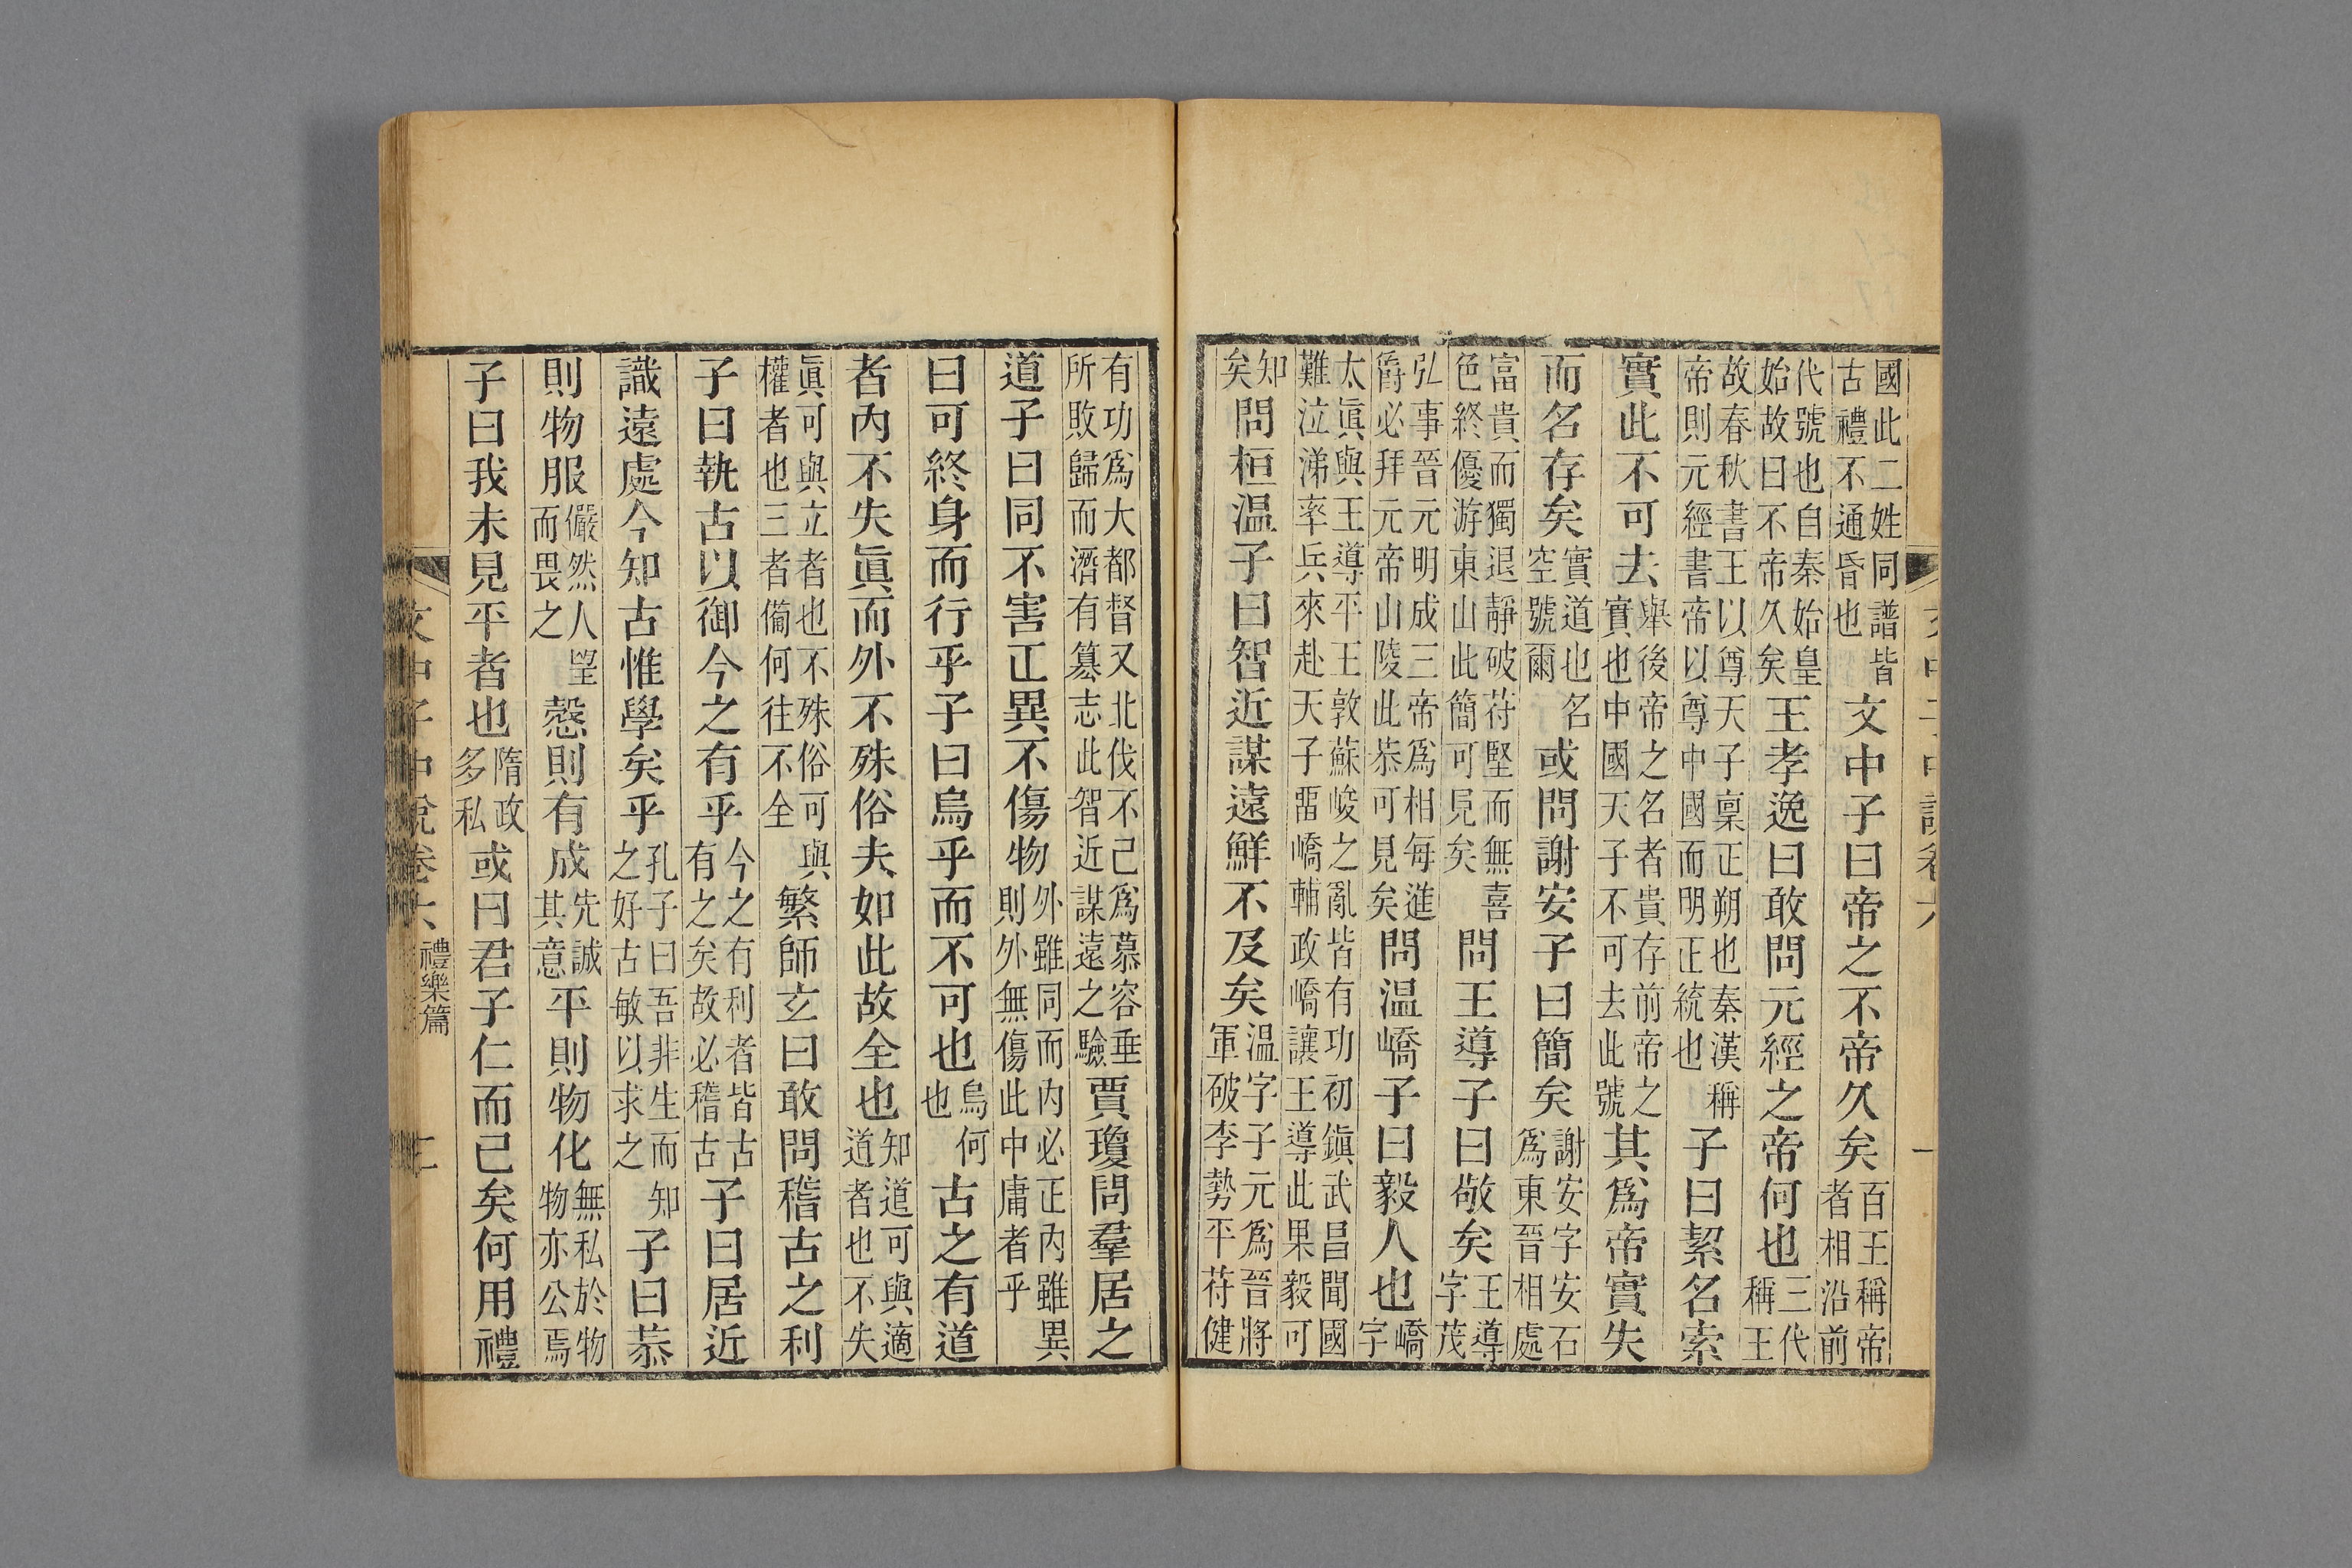 國此二姓同譜皆古禮不通昏也文中子曰帝之不帝久矣百王稱帝者相沿前
代號也自秦始皇始故曰不帝久矣王孝逸曰敢問元經之帝何也三代稱王
故春秋書王以尊天子稟正朔也秦漢稱帝則元經書帝以尊中國而明正統也子曰絜名索
實此不可去舉後帝之名者貴存前帝之實也中國天子不可去此號其爲帝實失
而名存矣實道也名空號爾或問謝安子曰簡矣謝安字安石爲東晉相處
富貴而獨退靜破苻堅而無喜色終優游東山此簡可見矣問王導子曰敬矣王導字茂
弘事晉元明成三帝爲相每進爵必拜元帝山陵此恭可見矣問温嶠子曰毅人也嶠字
太眞與王導平王敦蘇峻之亂皆有功初鎭武昌聞國難泣涕率兵來赴天子畱嶠輔政嶠讓王導此果毅可
知矣問桓温子曰智近謀遠鮮不及矣温字子元爲晉將軍破李勢平苻健
有功爲大都督又北伐不已爲慕容垂所敗歸而濳有篡志此智近謀遠之驗賈瓊問羣居之
道子曰同不害正異不傷物外雖同而内必正内雖異則外無傷此中庸者乎
曰可終身而行乎子曰烏乎而不可也烏何也古之有道
者内不失眞而外不殊俗夫如此故全也知道可與適道者也不失
眞可與立者也不殊俗可與權者也三者備何往不全繁師玄曰敢問稽古之利
子曰執古以御今之有乎今之有利者皆古有之矣故必稽古子曰居近
識遠處今知古惟學矣乎孔子曰吾非生而知之好古敏以求之子曰恭
則物服儼然人望而畏之慤則有成先誠其意平則物化無私於物物亦公焉
子曰我未見平者也隋政多私或曰君子仁而已矣何用禮
文中子中說卷六 禮樂篇